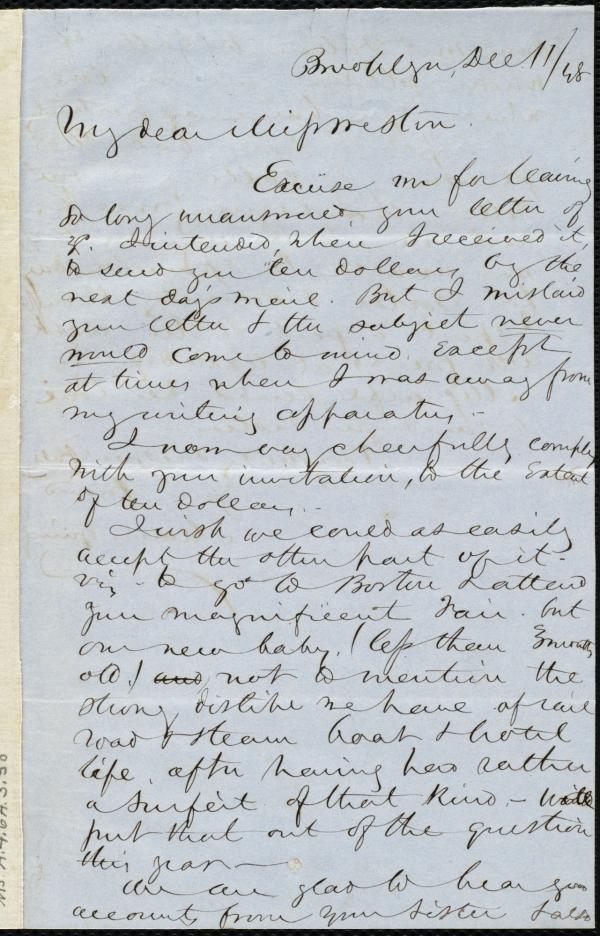 Brooklyn, Dec. 11/48
My dear Miss Weston.
Excuse me for leaving
so long unanswered your letter of
I intended, when I received it,
to send you ten dollars by the
next day's mail. But I mislaid
your letter & the subject never
would come to mind except
at times when I was away from
my writing apparatus. -
I now very cheerfully comply
with your invitation, to the extent
of ten dollars. -
I wish we could as easily
accept the other part of it -
viz - to go to Boston & attend
your magnificent Fair. but
our new baby, (less than 3 months
old!) and not to mention the
strong dislike we have of rail
road & steam boat & hotel
life, after having had rather
a surfeit of that kind, - will
put that out of the question
this year -
We are glad to hear good
accounts from your sister & also
MS A.4.6A.3.50